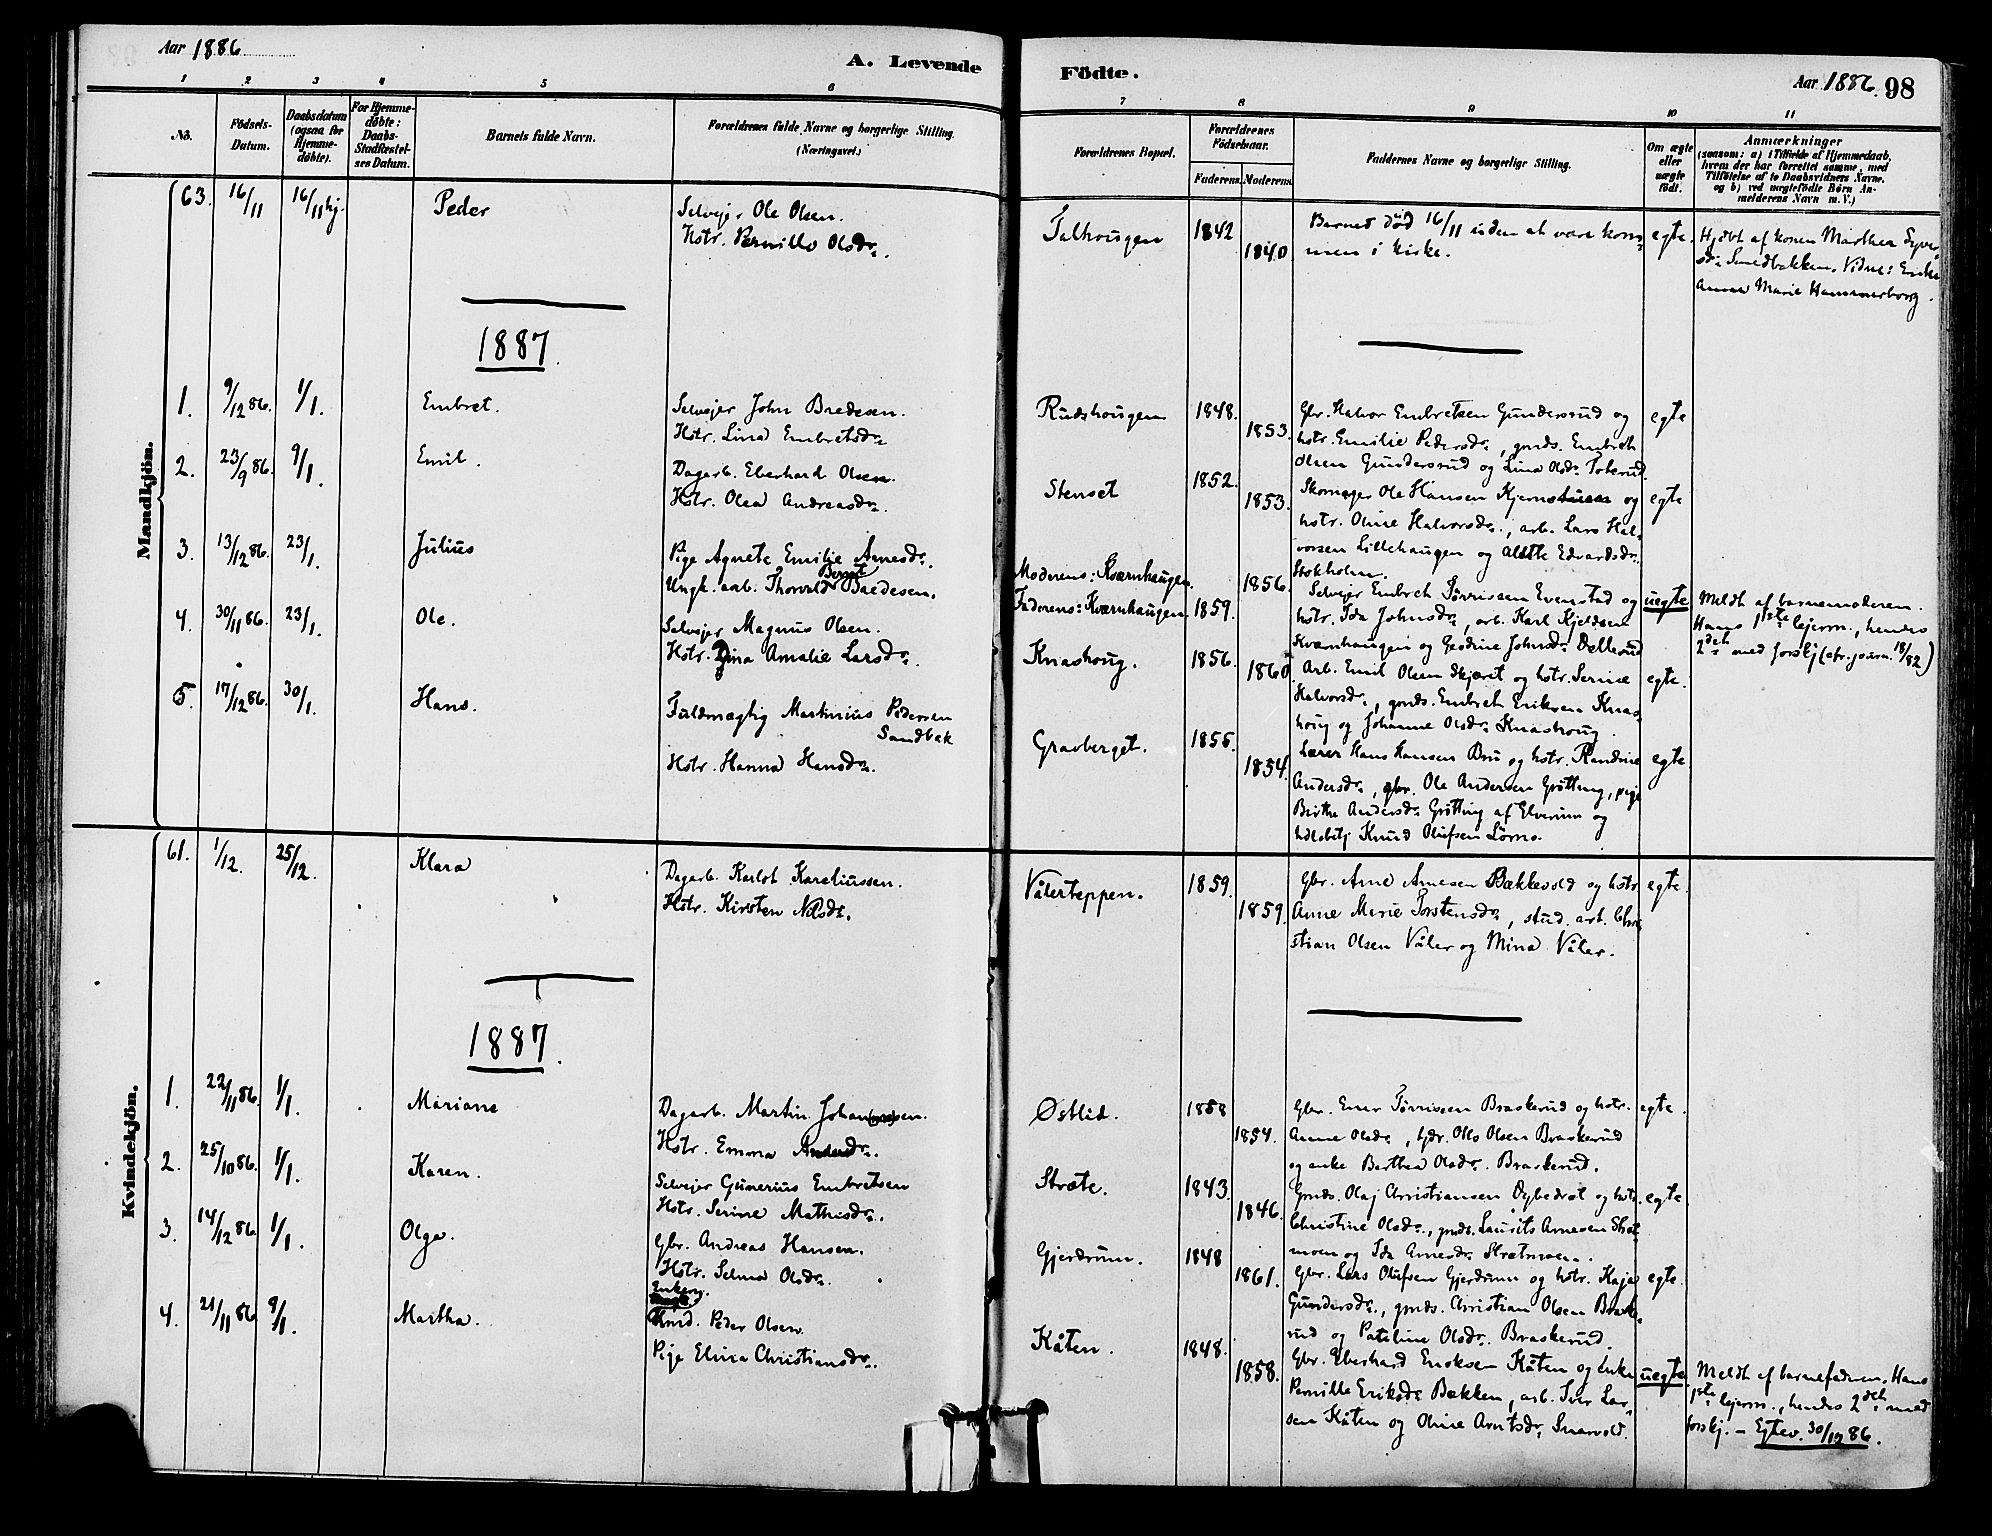 Aar 1886
A. Levende
Födte.
Aar 1886. 98
1 2 3 4 5 6 7 8 9 10 11
No.
Födsels-
Datum.
Daabsdatum
(ogsaa for
Hjemme-
döbte).
For Hjemme-
döbte:
Daabs-
Stadfæstel-
ses Datum.
Barnets fulde Navn.
Forældrenes fulde Navne og borgerlige Stilling.
(Næringsvei.)
Forældrenes Bopæl.
Forældrenes
Födselsaar.
Faderens. Moderens.
Faddernes Navne og borgerlige Stilling.
Om ægte
eller
uægte
födt.
Anmærkninger
(saasom: a) i Tilfælde af Hjemmedaab,
hvem der har forrettet samme, med
Tilföielse af to Daabsvidners Navne.
og b) ved uægtefödte Börn An-
melderens Navn m. V.)
Mandkjön.
63. 16/11 16/11 hj. Peder
Selvejer Ole Olsen.
Hstr. Pernille Olsdr.
Talhougen
1842
1840
Barnet död 16/11 uden at være kom-
men i kirke.
egte.
Hjdbt af konen Marthea Syver
sdr Smedbakken. Vidne: Enke
Anne Marie Hammerborg.
1887.
1. 9/12 86. 1/1. Embret.
Selvejer John Bredesen.
Hstr. Lina Embretsdr
Rudshougen
1848.
1853.
Gbr. Halvor Embretsen Gundersrud og
hstr. Emilie Pedersdr, gmds. Embret
Olsen Gundersrud og Lina Olsdr
egte
2. 23/9 86. 9/1. Emil.
Dagarb. Eberhard Olsen.
Hstr. Olea Andreasdr.
Stenset
1852.
1853.
Skomager Ole Hansen og
hstr. Oline Halvorsdr., arb. Lars Hal-
vorsen Lillehaugen og Alette Edvardsdr
Stokholm.
egte
3. 13/12 86. 23/1. Julius
Pige Agnete Emilie Arnesdr.
Ungk. arb. Thorvald Bernt Bredesen.
Moderens: Kværnhaugen.
Faderens: Kværnhaugen
1856.
1859.
Selvejer Embret Törrissen Evenstad og
hstr. Ida Johnsdr, arb. Karl Kjeldsen
Kværnhaugen og Gesdine Johnsdr
uegte
Meldt af barnemoderen.
Hans 1ste lejerm., hendes
2det med forskj (cfr. journ. 18/82)
4. 30/11 86. 23/1. Ole.
Selvejer Magnus Olsen.
Hstr. Dina Amalie Larsdr.
Knashoug.
1856.
1860
Arb. Emil Olsen Skjæret og hstr. Serine
Halvorsdr, gmds. Embret Eriksen Knas-
houg og Johanne Olsdr Knashoug.
egte.
5. 17/12 86. 30/1. Hans.
Fuldmægtig Martinius Pedersen
Sandbæk
Hstr. Hanna Hansdr.
Gravberget.
1855.
1854.
Lærer Hans Hansen Bru og hstr. Randine
Andersdr, gbr. Ole Andersen Grötting, pige
Birthe Andersdr Grötting af Elverum og
Knud Olufsen Lörna.
egte.
61. 1/12. 25/12. Klara
Dagarb. Karlot Kareliussen.
Hstr. Kirsten Nilsdr.
Vålerteppen.
1859.
1859.
Gbr. Arne Arnesen Bækkevold og hstr
Anne Marie Torstensdr, stud. art. Chri-
stian Olsen Våler og Mina Våler.
egte.
1887.
Kvindekjön.
1. 22/11 86. 1/1. Mariane
Dagarb. Martin Johan(nes)sen.
Hstr. Emma Andersdr.
Östlid.
1858
1854.
Gbr. Ener Törrissen Braskerud og hstr.
Anne Olsdr, fdr. Olls Olsen Braskerud
og enke Berthea Olsdr. Braskerud.
egte.
2. 25/10 86. 1/1. Karen.
Selvejer Gunerius Embretsen
Hstr. Serine Mathisdr.
Stræte.
1843.
1846.
Gmds. Olaj Christiansen og hstr.
Christine Olsdr., gmds. Laurits Arnesen Stræt
moen og Ida Arnesdr. Strætmoen.
egte
3. 14/12 86. 1/1. Olga.
Gbr. Andreas Hansen.
Hstr. Selma Olsdr.
Gjerdrum.
1848
1861.
Gbr. Lars Olufsen Gjerdrum og hstr. Kaja
Gundersdr., gmds. Christian Olsen Braske-
rud og Pauline Olsdr. Braskerud.
egte.
4. 21/11 86 9/1. Martha.
Enkem.
Gmd. Peder Olsen
Pige Elvira Christiansdr.
Kåten.
1848.
1858.
Gbr. Eberhard Eriksen Kåten og Enke
Pernille Eriksdr Bækken, arb. Iver Lar-
sen Kåten og Oline Arntsdr. Snarvold.
uegte.
Meldt af barnefaderen. Hans
1ste lejerm., hendes 2det med
forskj. – Egtev. 30/12 86.